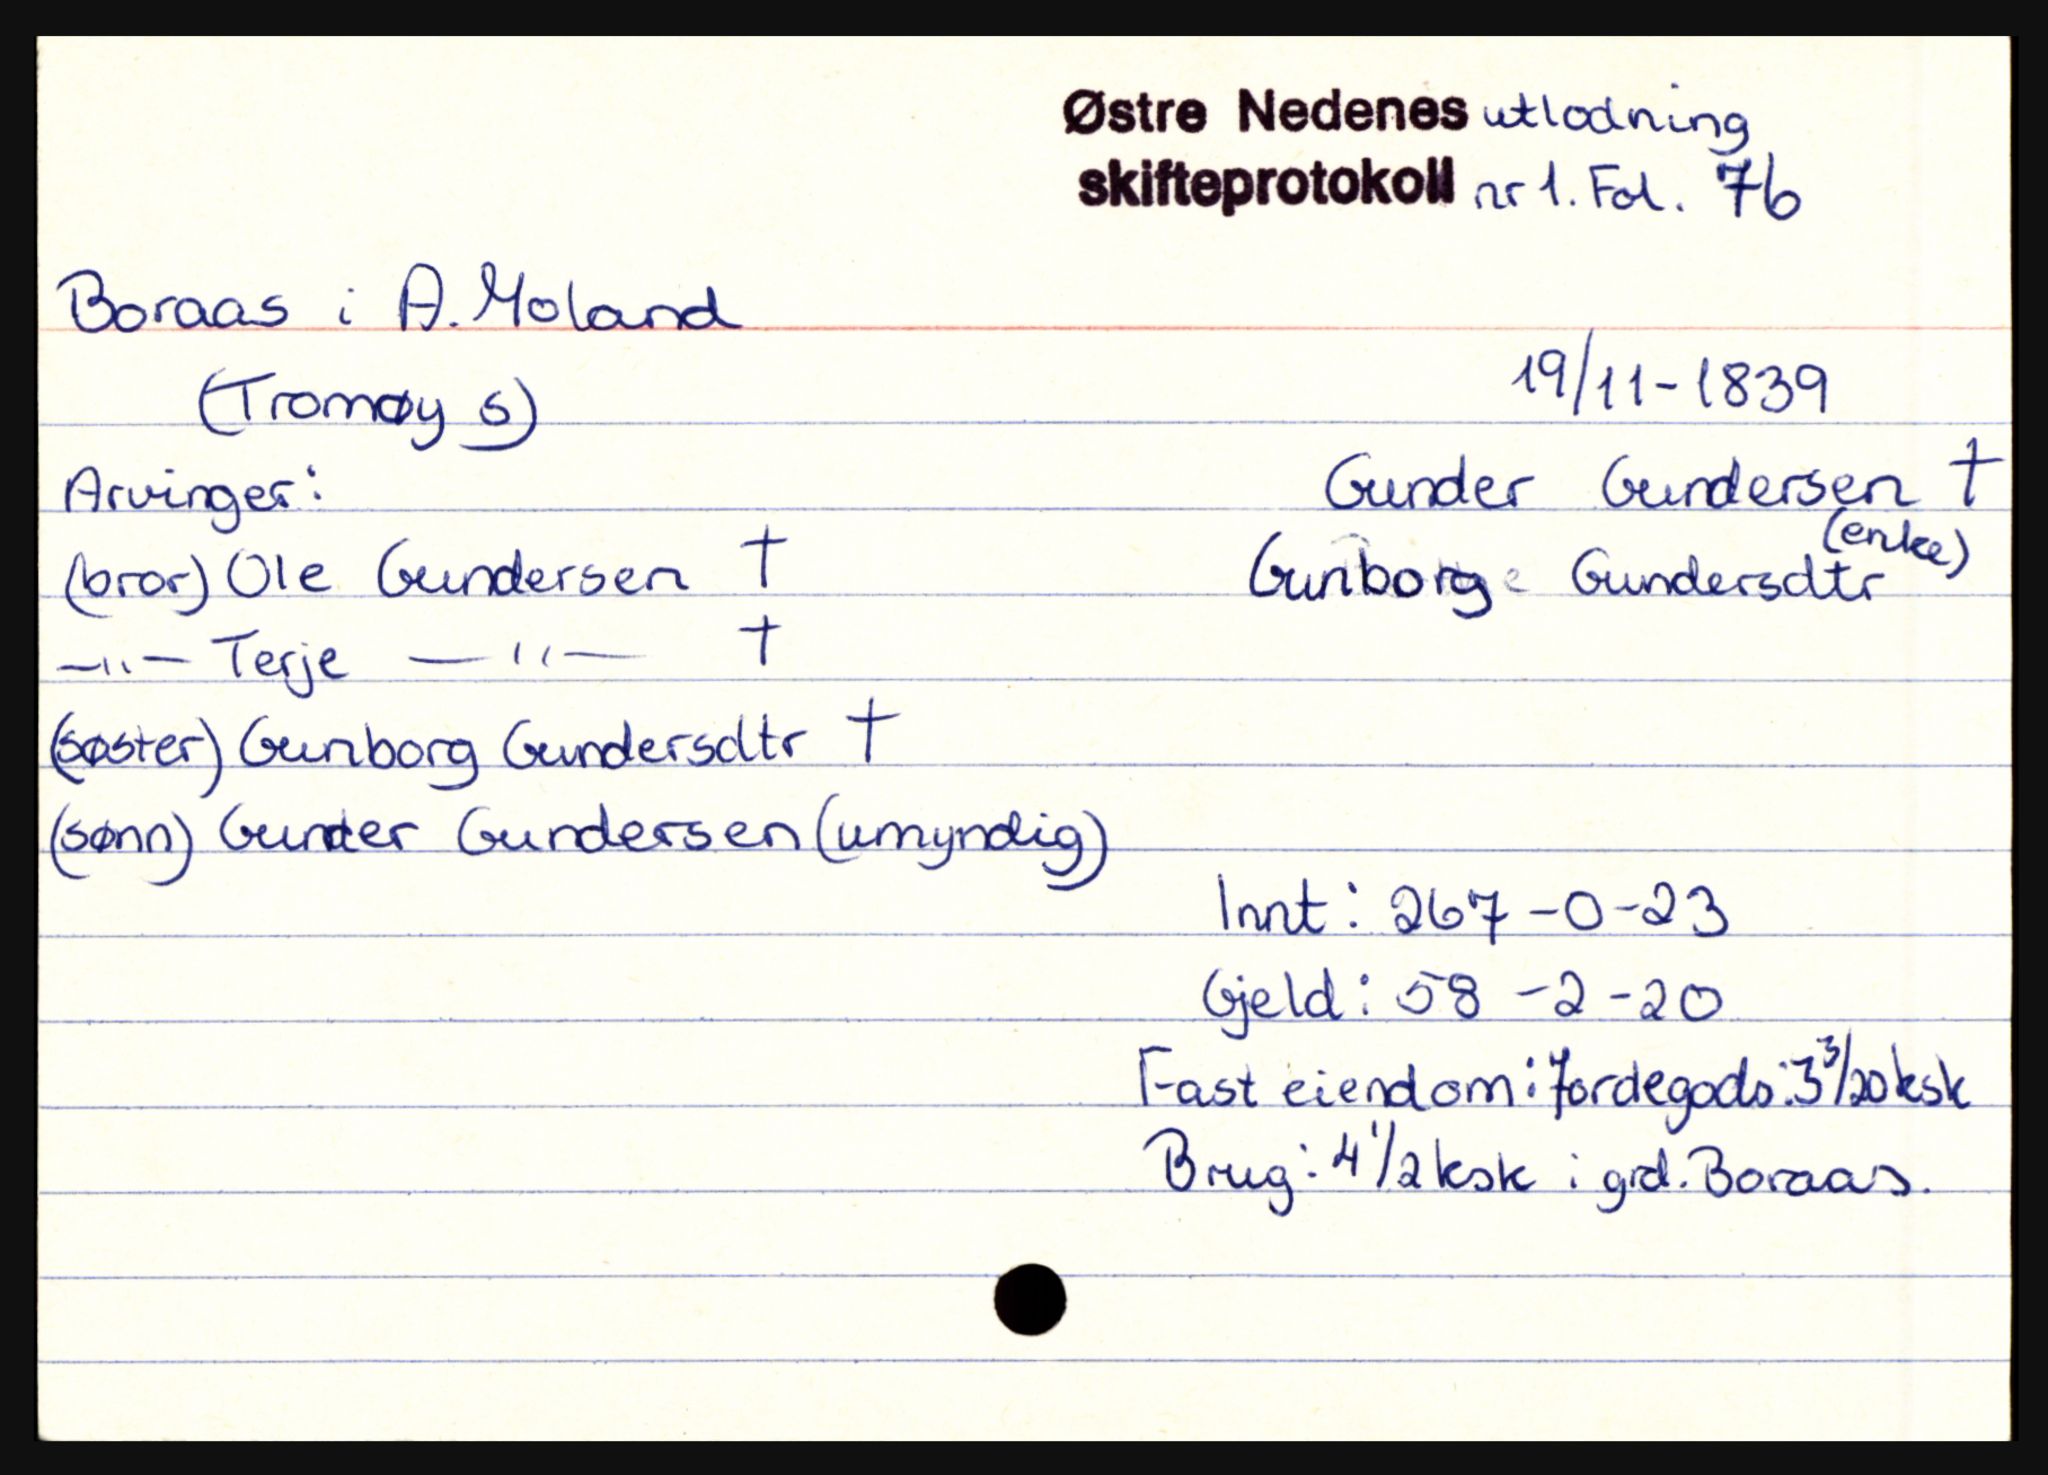 Østre Nedenes utlodning
skifteprotokoll nr 1. Fol. 76
Boraas i A. Moland
(Tromøy s)
19/11-1839
Arvinger:
Gunder Gundersen †
(bror) Ole Gundersen †
Gunborg Gundersdtr (enke)
—"— Terje —"— †
(søster) Gunborg Gundersdtr †
(sønn) Gunder Gundersen (umyndig)
Innt: 267-0-23
Gjeld: 58-2-20
Fast eiendom: Jordegods: 3 3/20 ksk
Brug: 4 1/2 ksk i grd. Boraas.